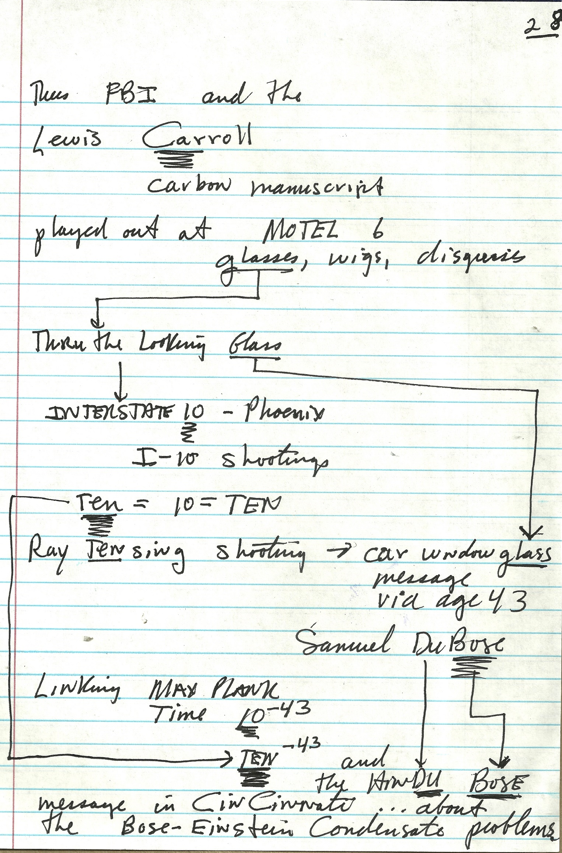 28
Thus FBI and the
Lewis Carroll
carbon manuscript
played out at MOTEL 6
glasses, wigs, disguises
Thru the Looking Glass
INTERSTATE 10 - Phoenix
I-10 shootings
Ten = 10 = TEN
Ray TENsing shooting → car window glass
message
via age 43
Samuel DuBose
Linking MAX PLANK
Time 10⁻⁴³
TEN⁻⁴³ and
the HinDU BOSE
message in CinCinnati ... about
the Bose-Einstein Condensate problems